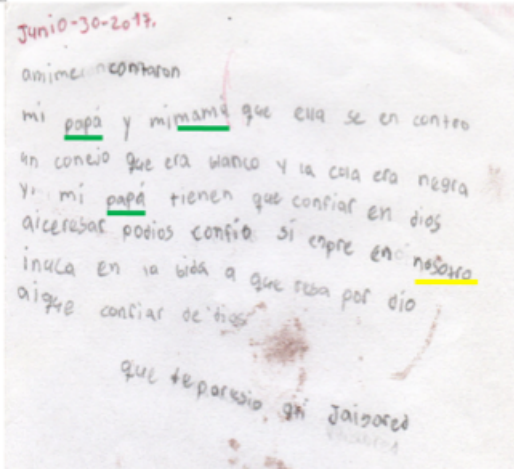 Junio-30-2017.
a mi me contaron
mi papá y mi mamá que ella se en contro
un conejo que era blanco y la cola era negra
y mi papá tienen que confiar en dios
aiceresar podios confia si enpre en nosotro
inuca en la bida a que resa por dio
aique confiar de dios
que te paresio